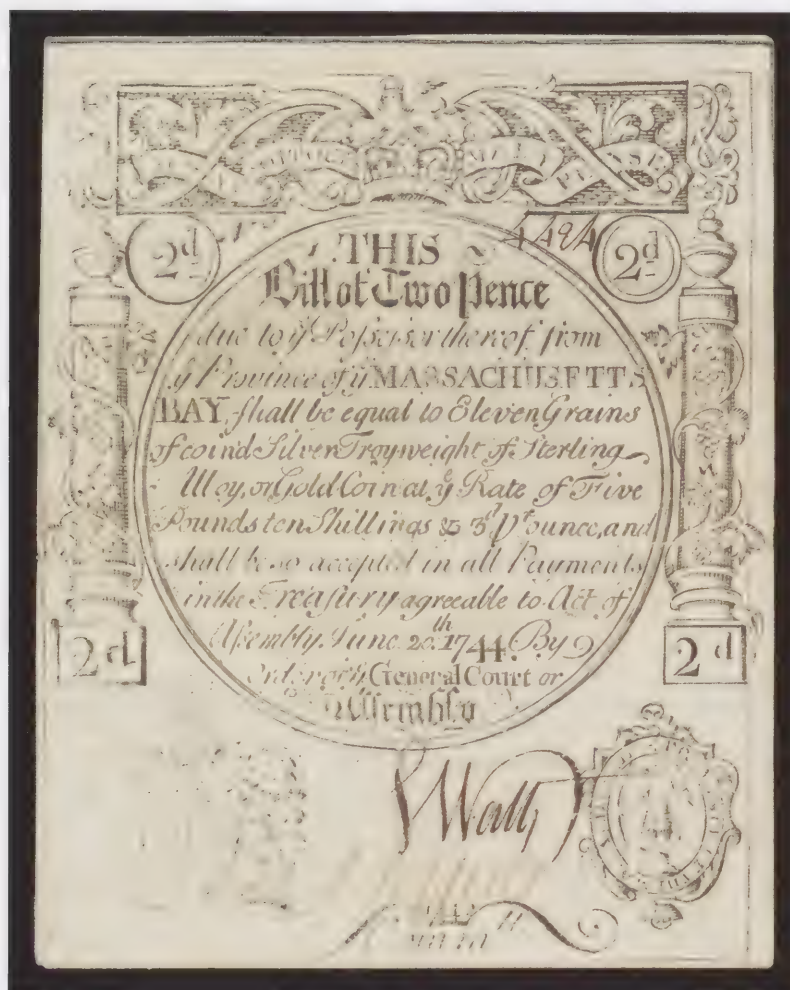 2d
2d
THIS
Bill of Two Pence
due to ye Possessor thereof from
ye Province of ye MASSACHUSETTS
BAY, shall be equal to Eleven Grains
of coind Silver Troyweight of Sterling
Alloy, or Gold Coin at ye Rate of Five
Pounds ten Shillings & 3d pr ounce, and
shall be so accepted in all Payments
in the Treasury agreeable to Act of
Assembly June 20th 1744. By
Order of ye General Court or
Assembly
2d
2d